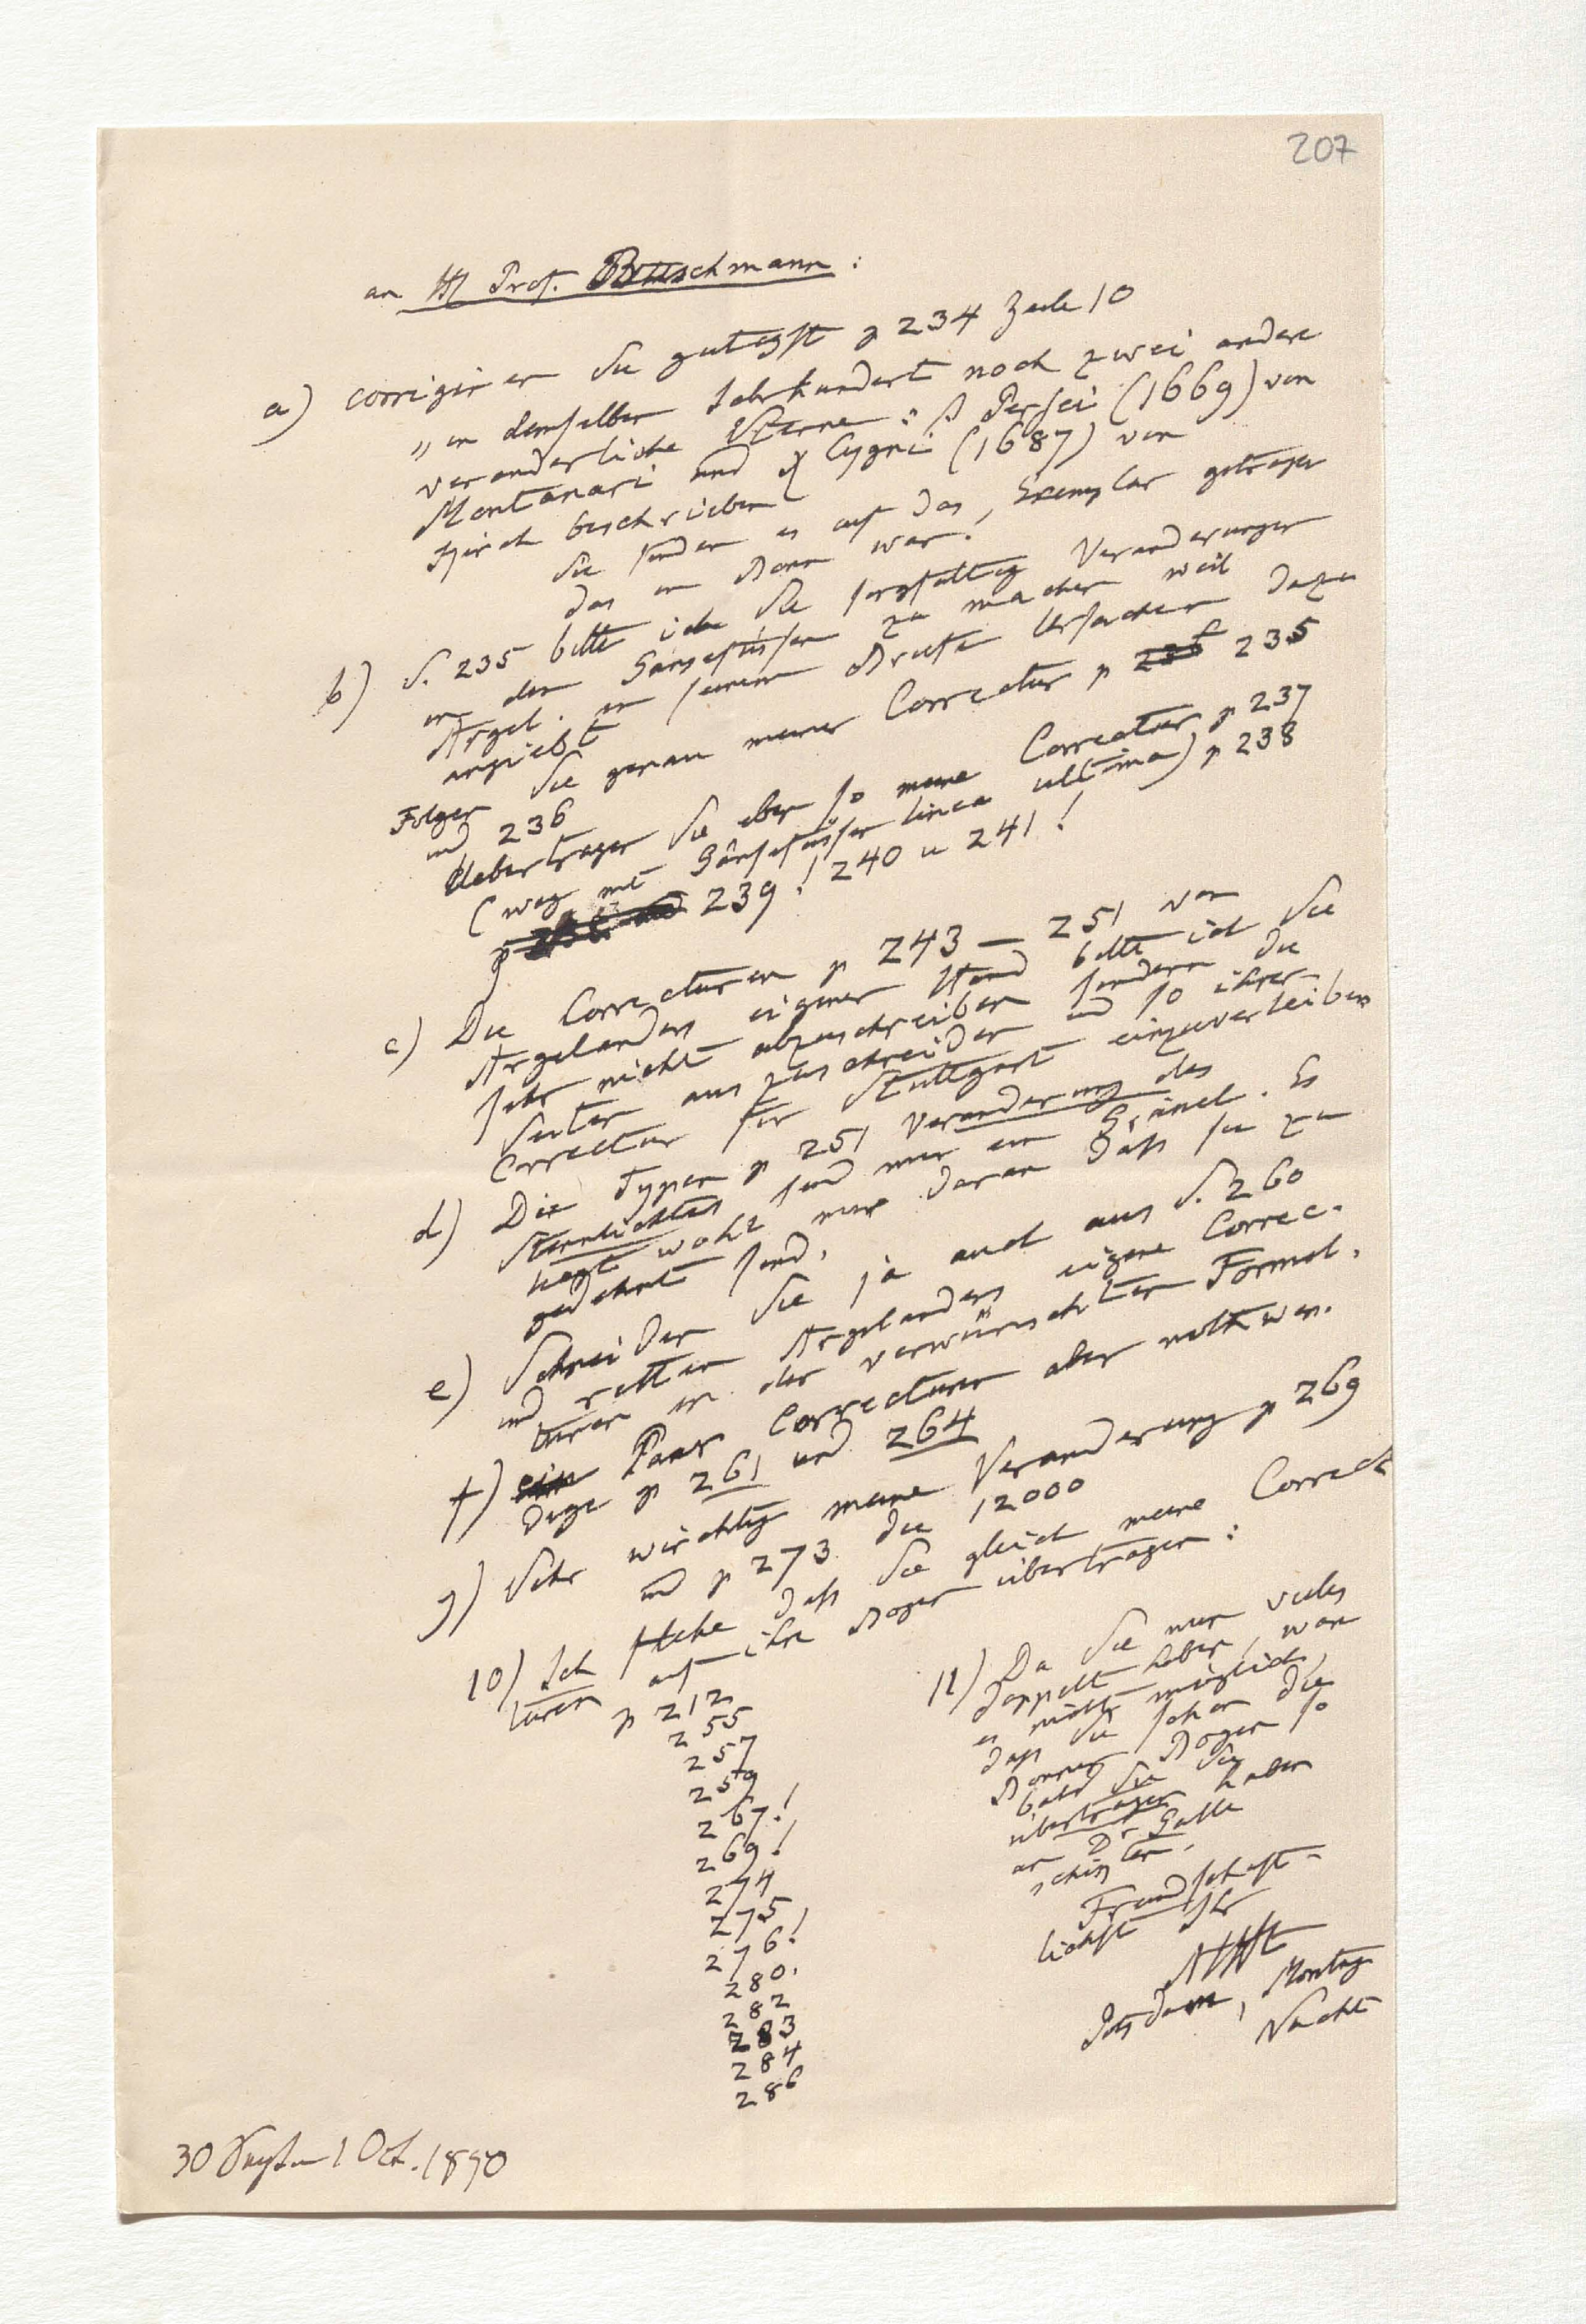 207
an H Prof. Buschmann:
a) corrigiren Sie gütigst p 234 Zeile 10
„in demselben Jahrhundert noch zwei andere
veränderliche Sterne: β Persei (1669) von
Montanari und χ Cygni (1687) von
Kirch beschrieben
Sie finden es auf das Exemplar getragen
das in Bonn war!
b) S. 235 bitte ich Sie sorgfältig Veränderungen
in den Gänsefüssen zu machen weil
Argel. in seinem Briefe Ursachen dazu
angiebt
Folgen Sie genau meiner Correctur p 235
und 236
Uebertragen Sie eben so meine Correctur p 237
(weg mit Gänsefüssen linea ultima) p 238
p 239! 240 u 241!
c) Die Correcturen p 243 – 251 von
Argelanders eigener Hand bitte ich Sie
sehr nicht abzuschreiben sondern die
Seiten auszuschneiden und so ihrer
Correctur für Stuttgart einzuverleiben
d) Die Typen p 251 Veränderung des
Sternlichtes sind nur ein Gräuel. Es
liegt wohl nur daran daß sie zu
gedehnt sind.
e) Schneiden Sie ja auch aus S. 260
und retten Argelanders eigene Correc-
turen in der verwünschten Formel.
f) Paar Correcturen aber nothwen-
dige p 261 und 264
g) Sehr wichtig meine Veränderung p 269
und p 273 die 12000
10) Ich flehe daß Sie gleich meine Correc
turen auf ihre Bogen übertragen:
p 212
255
257
259
267!
269!
274
275
276!
280.
282
283
284
286
11) Da Sie nur vieles
doppelt haben, wäre
es nicht möglich
daß Sie schon die
Bonner Bogen so
bald Sie Sie
übertragen haben
an Dr Galle
schikten.
Freundschaft-
lichst Ihr
AHt
Potsdam, Montag
Nacht
30 Sept – 1 Oct. 1850